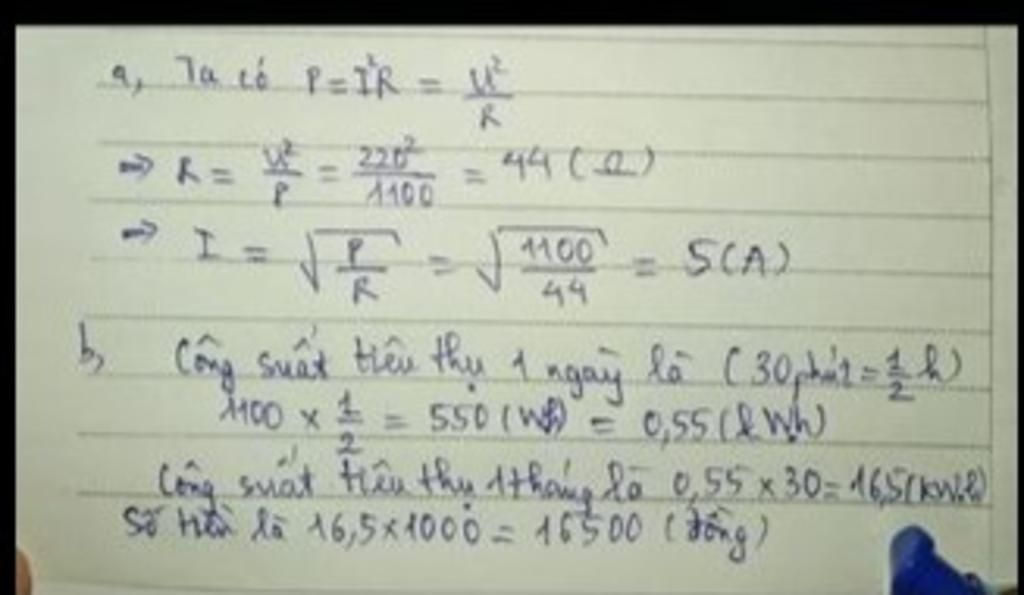 a, Ta có P = I²R = U²/R
⇒ R = U²/P = 220²/1100 = 44 (Ω)
⇒ I = √(P/R) = √(1100/44) = 5(A)
b, Công suất tiêu thụ 1 ngày là (30 phút = 1/2 h)
1100 × 1/2 = 550 (Wh) = 0,55 (kWh)
Công suất tiêu thụ 1 tháng là 0,55 × 30 = 16,5 (kW.h)
Số tiền là 16,5 × 1000 = 16500 (đồng)